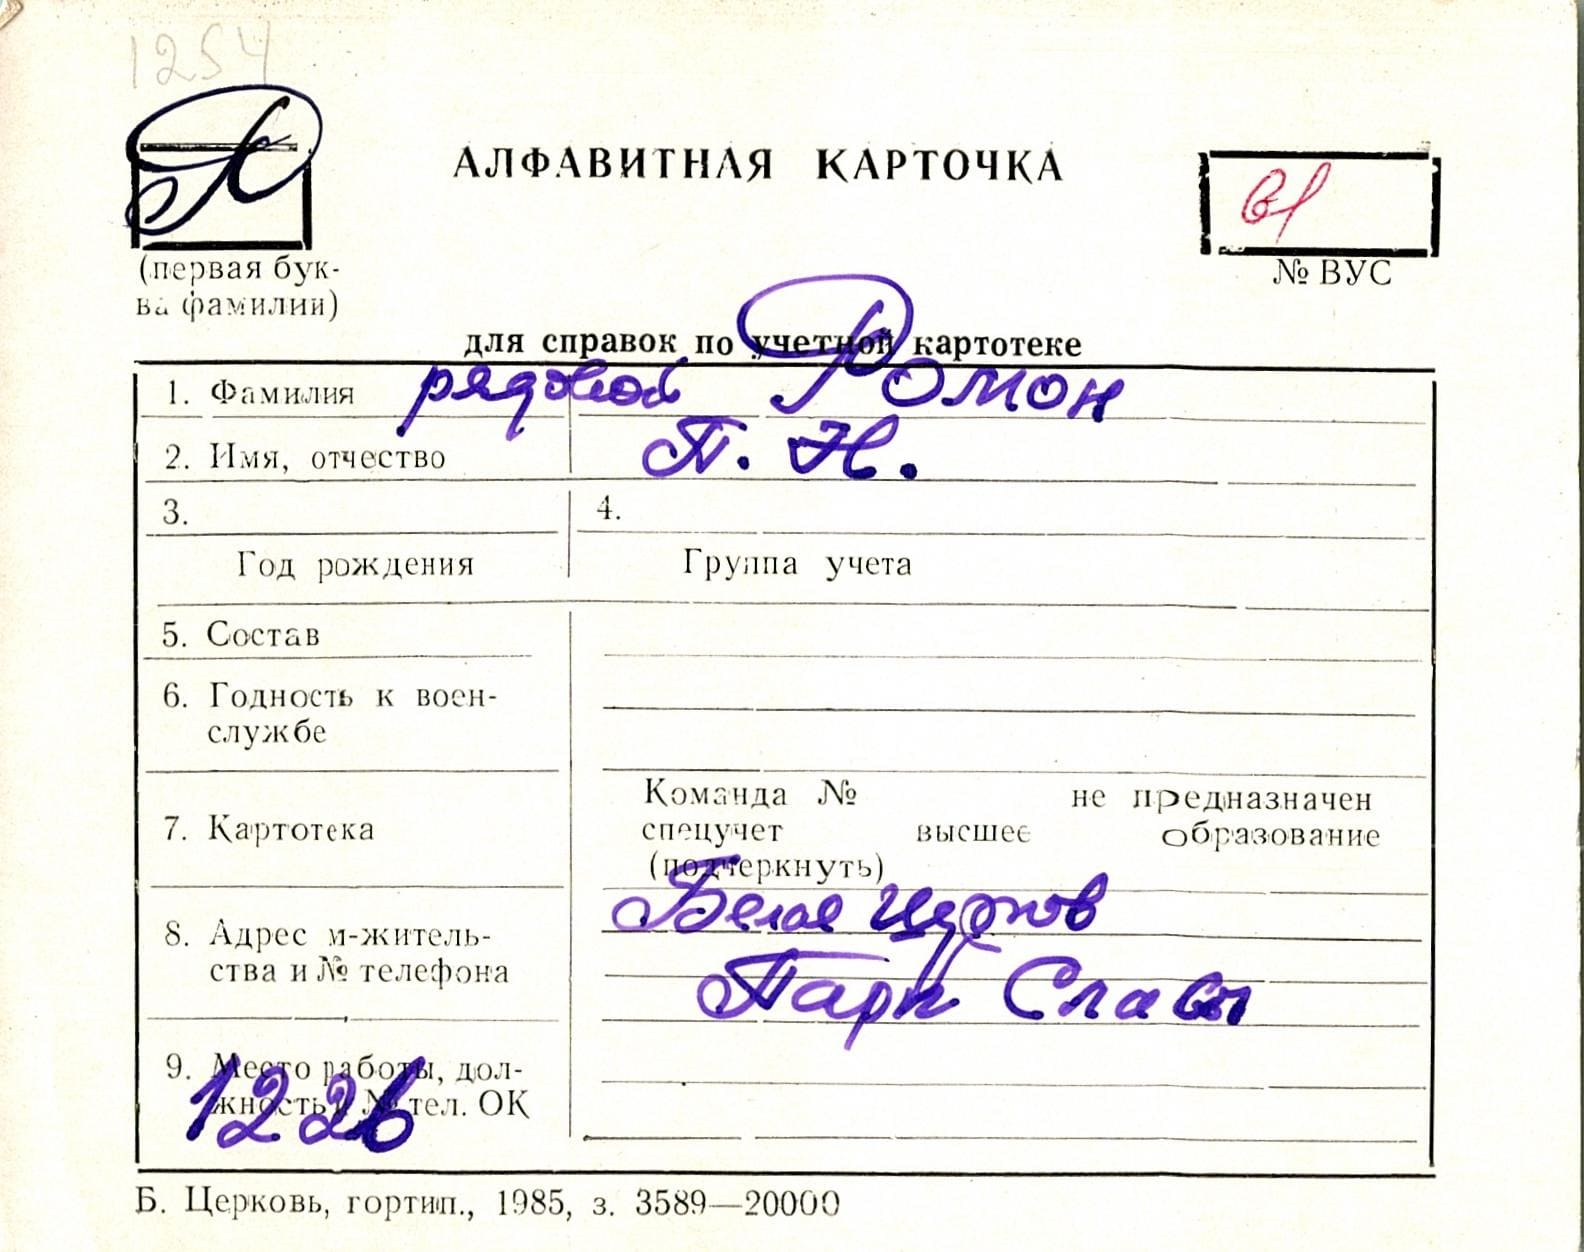 1254
Р
АЛФАВИТНАЯ КАРТОЧКА
(первая бук-
ва фамилии)
№ ВУС
для справок по учетной картотеке
1. Фамилия рядовой Ромон
2. Имя, отчество П. Н.
3. 4.
Год рождения Группа учета
5. Состав
6. Годность к воен-
службе
Команда № не предназначен
7. Картотека спецучет высшее образование
(подчеркнуть)
8. Адрес м-житель- Белая Церков
ства и № телефона Парк Славы
9. Место работы, дол-
жность и № тел. ОК
1226
Б. Церковь, гортип., 1985, з. 3589—20000